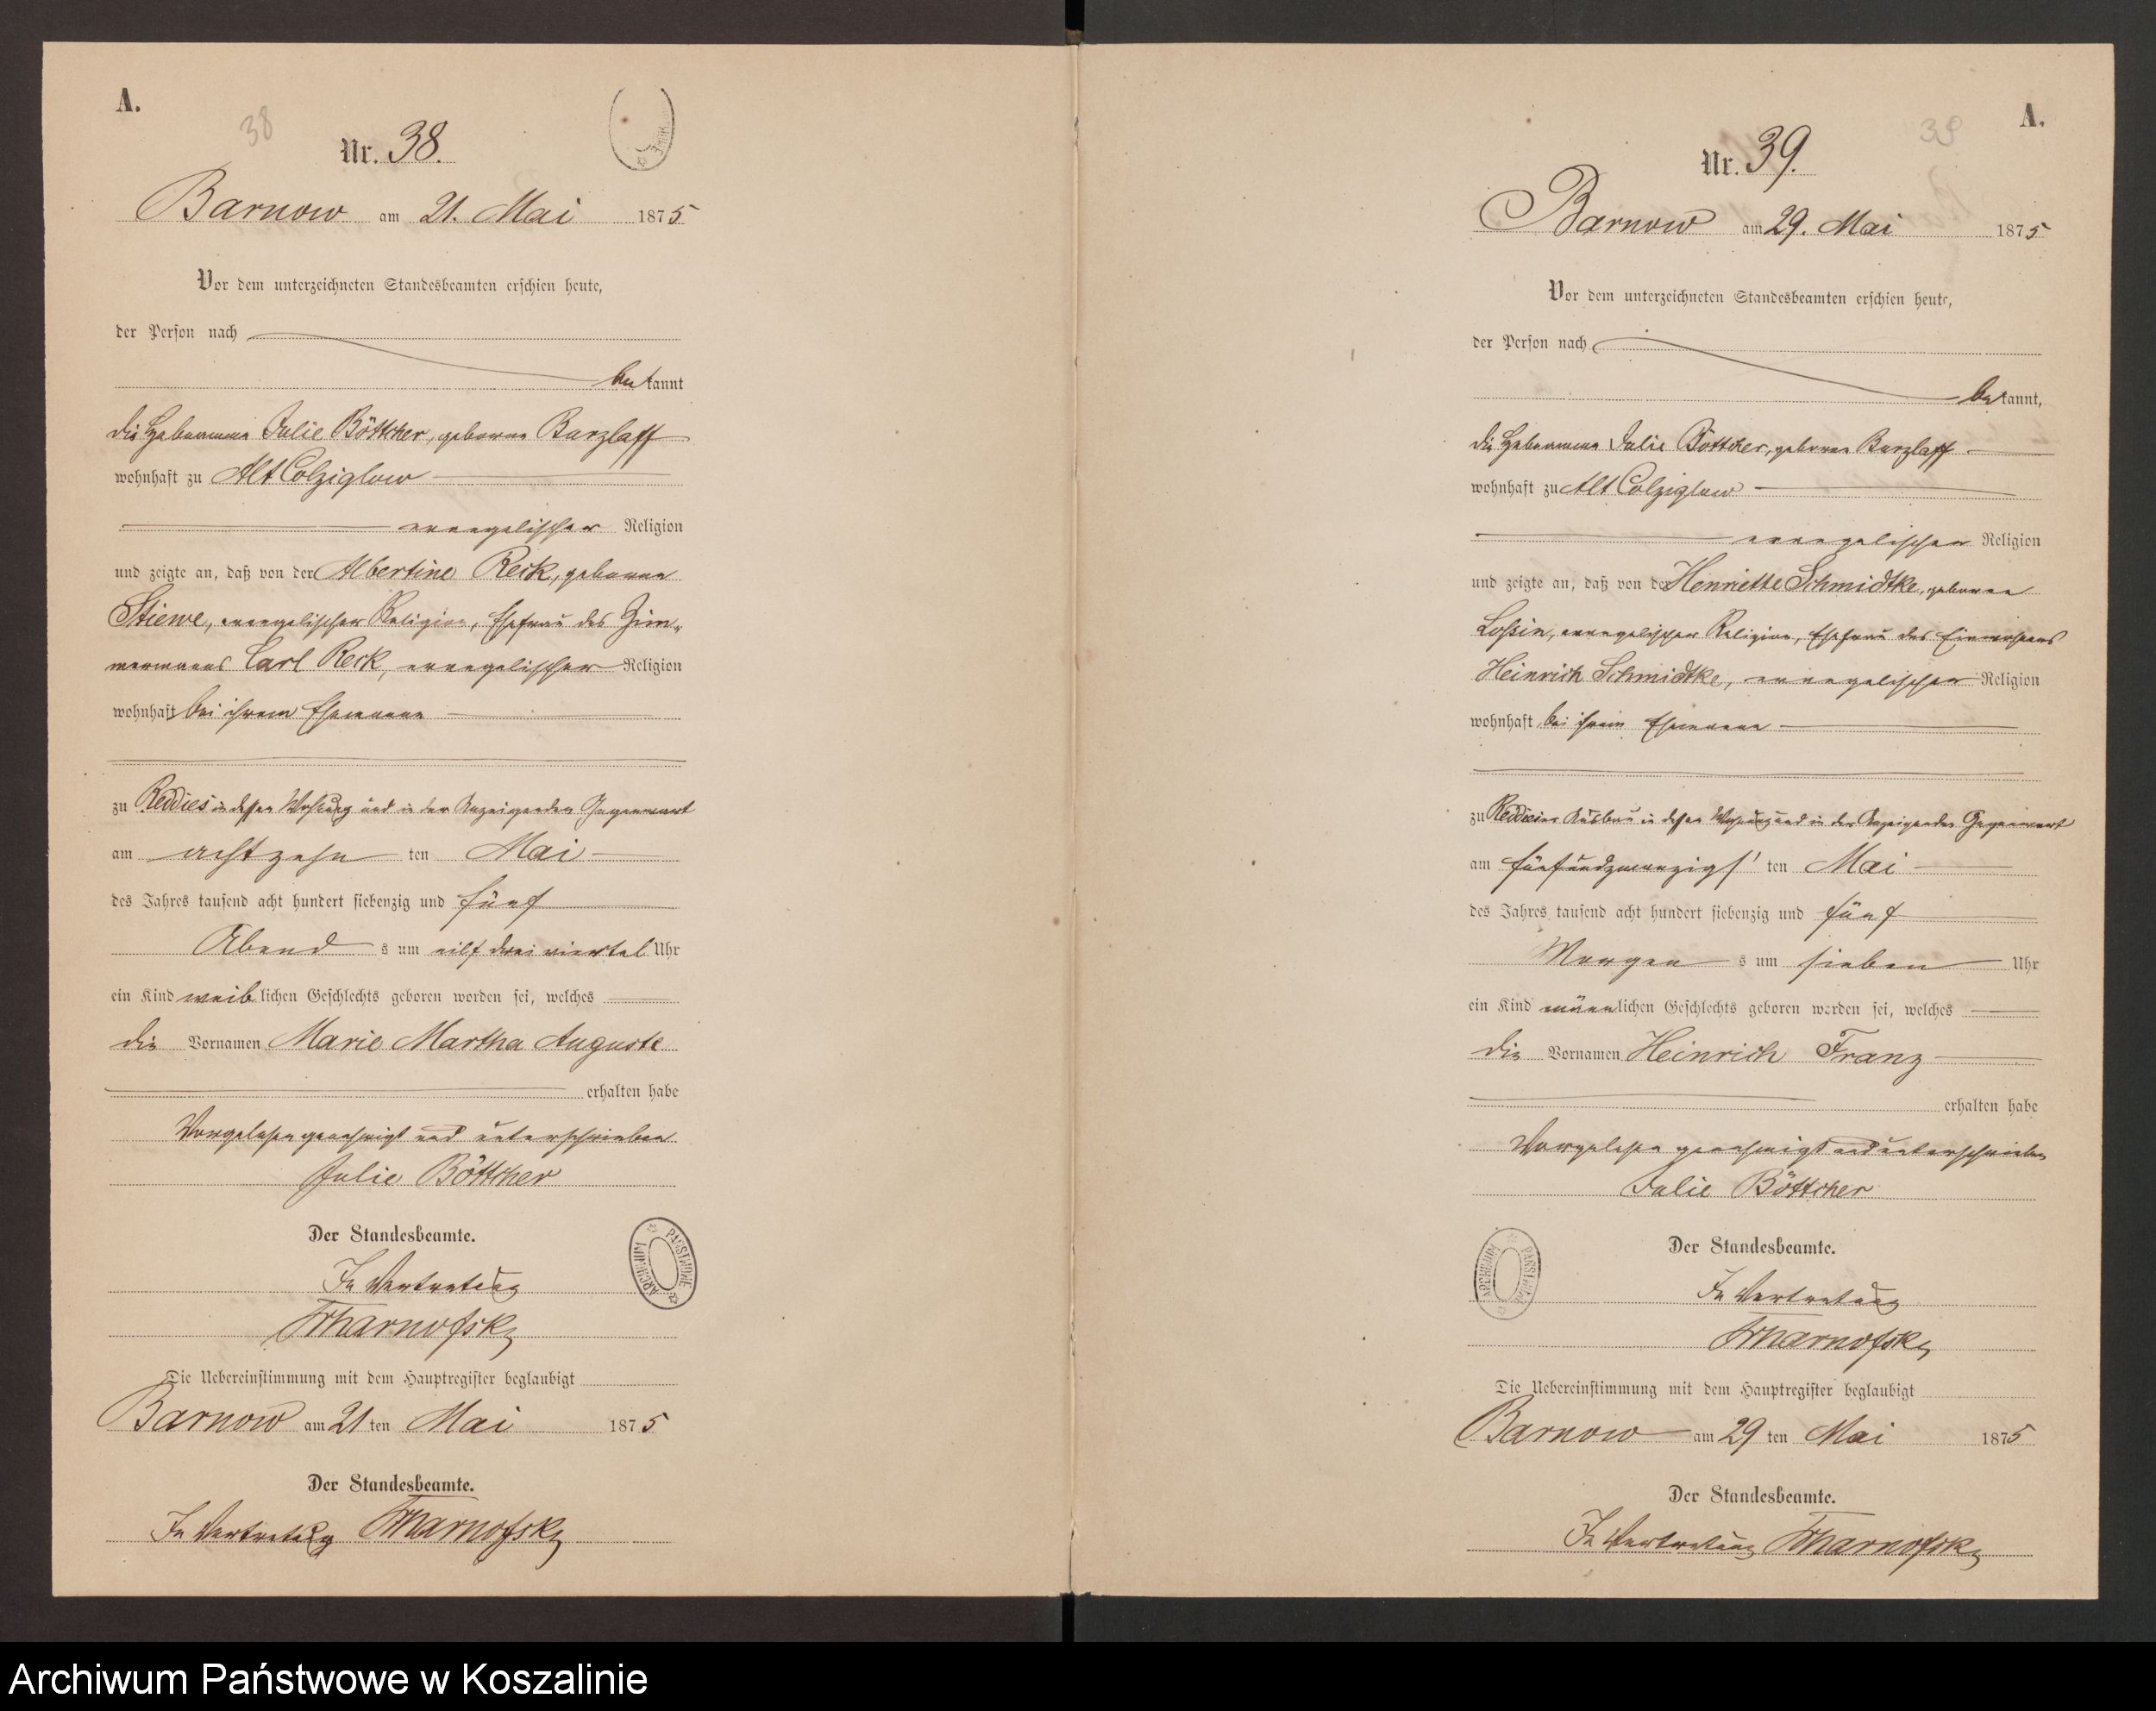 A.
38
Nr. 38.
Barnow am 21. Mai 1875
Vor dem unterzeichneten Standesbeamten erschien heute,
der Person nach
bekannt
die Hebamme Julie Böttcher, geborne Barzlaff
wohnhaft zu Alt Colziglow
evangelischer Religion
und zeigte an, daß von der Albertine Reck, geborne
Stiewe, evangelischer Religion, Ehefrau des Zim-
mermanns Carl Reck, evangelischer Religion
wohnhaft bei ihrem Ehemanne
zu Reddies in dessen Wohnung und in der Anzeigenden Gegenwart
am achtzehn ten Mai
des Jahres tausend acht hundert siebenzig und fünf
Abend s um eilf dreiviertel Uhr
ein Kind weiblichen Geschlechts geboren worden sei, welches
die Vornamen Marie Martha Auguste
erhalten habe
Vorgelesen genehmigt und unterschrieben
Julie Böttcher
Der Standesbeamte.
In Vertretung
ARCHIWUM PAŃSTWOWE
Die Uebereinstimmung mit dem Hauptregister beglaubigt
Barnow am 21 ten Mai 1875
Der Standesbeamte.
In Vertretung
A.
39
Nr. 39.
Barnow am 29. Mai 1875
Vor dem unterzeichneten Standesbeamten erschien heute,
der Person nach
bekannt,
die Hebamme Julie Böttcher, geborne Barzlaff
wohnhaft zu Alt Colziglow
evangelischer Religion
und zeigte an, daß von der Henriette Schmidtke, geborne
Lossin, evangelischer Religion, Ehefrau des Einwohners
Heinrich Schmidtke, evangelischer Religion
wohnhaft bei ihrem Ehemanne
zu Reddieser Ausbau in dessen Wohnung und in der Anzeigenden Gegenwart
am fünfundzwanzigs ten Mai
des Jahres tausend acht hundert siebenzig und fünf
Morgen s um sieben Uhr
ein Kind männlichen Geschlechts geboren worden sei, welches
die Vornamen Heinrich Franz
erhalten habe
Vorgelesen genehmigt und unterschrieben
Julie Böttcher
Der Standesbeamte.
In Vertretung
ARCHIWUM PAŃSTWOWE
Die Uebereinstimmung mit dem Hauptregister beglaubigt
Barnow am 29 ten Mai 1875
Der Standesbeamte.
In Vertretung
Archiwum Państwowe w Koszalinie